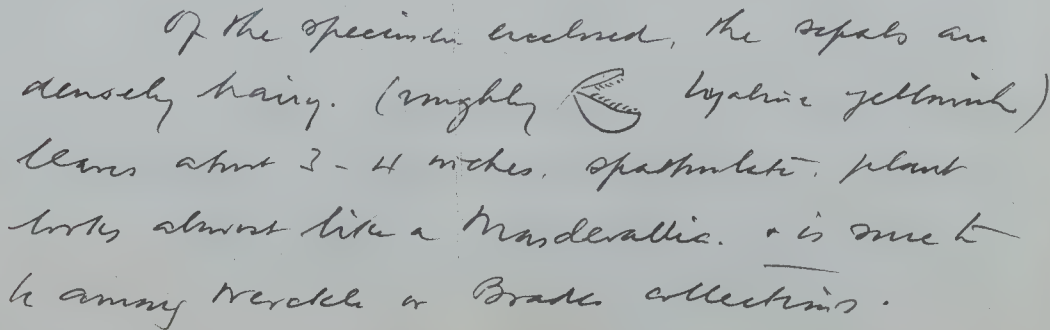 Of the specimen enclosed, the sepals are
densely hairy. (roughly hyaline yellowish)
leaves about 3-4 inches. spathulate. plant
looks almost like a Masdevallia. + is sure to
be among Werckle or Brades collections.